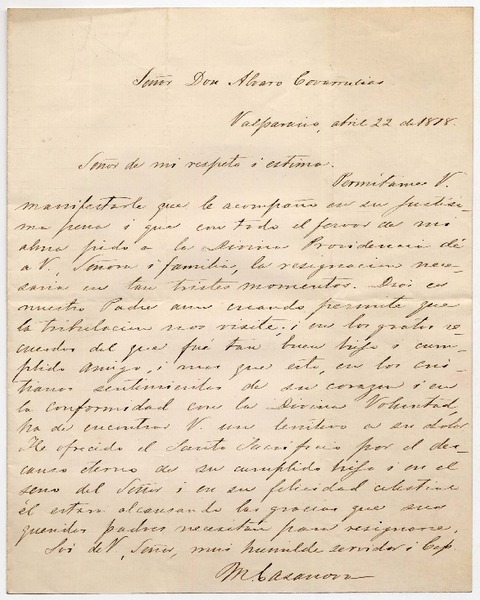 Señor Don Alvaro Covarrubias
Valparaiso, abril 22 de 1878.
Señor de mi respeto i estima.
Permítame V.
manifestarle que le acompaño en su justísi-
ma pena i que con todo el fervor de mi
alma pido a la Divina Providencia dé
a V., Señora i familia, la resignacion nece-
saria en tan tristes momentos. Dios es
nuestro Padre aun cuando permite que
la tribulacion nos visite; i en los gratos re-
cuerdos del que fué tan buen hijo i cum-
plido amigo, i mas que esto, en los cris-
tianos sentimientos de su corazon i en
la conformidad con la Divina Voluntad,
ha de encontrar V. un lenitivo a su dolor.
He ofrecido el Santo Sacrificio por el des-
canso eterno de su cumplido hijo i en el
seno del Señor i en su felicidad celestial
él estará alcansando las gracias que sus
queridos padres necesitan para resignarse.
Soi de V., Señor, mui humilde servidor i Cap.
M. Casanova